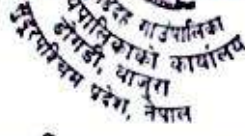 गाउँपालिका
कार्यालय
डोगडी, बाजुरा
सुदूरपश्चिम प्रदेश, नेपाल